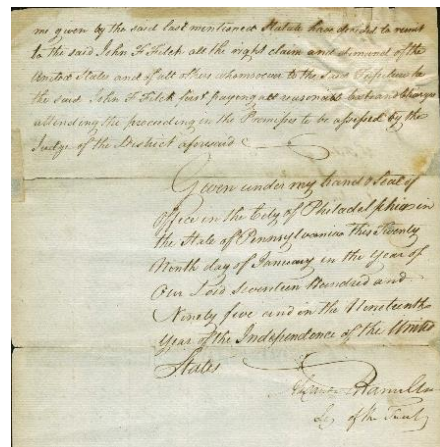 me given by the said last mentioned Statute have decided to remit
to the said John F Fitch all the right claim and demand of the
United States and of all others whomsoever to the said
the said John F Fitch first paying all reasonable costs and Charges
attending the proceeding in the Premisses to be assessed by the
Judge of the District aforesaid
Given under my hand & Seal of
Office in the City of Philadelphia in
the State of Pennsylvania this Twenty
Ninth day of January in the Year of
Our Lord Seventeen Hundred and
Ninety five and in the Nineteenth
Year of the Independence of the United
States
Hamilton
Sey of the Treasy